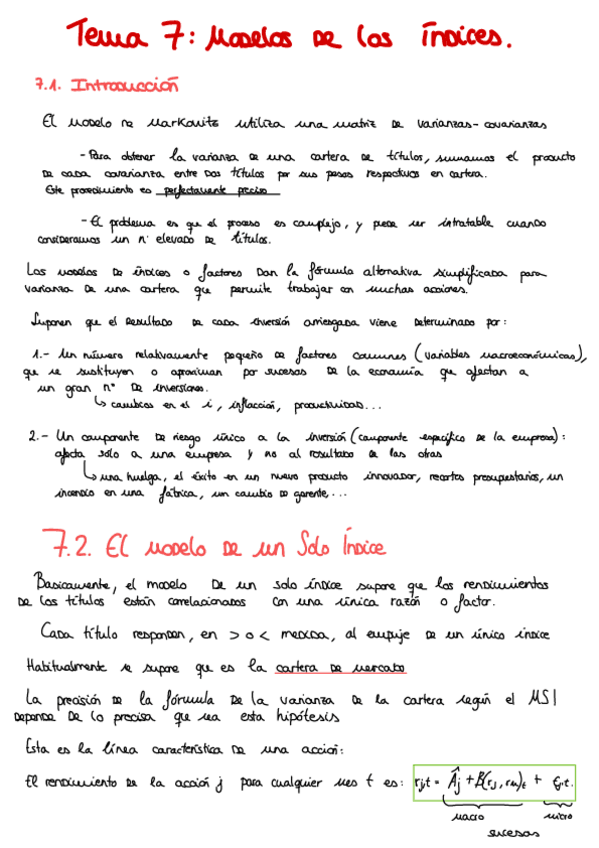 Tema 7: Modelos de los índices.
7.1. Introducción
El modelo de Markowitz utiliza una matriz de varianzas-covarianzas
- Para obtener la varianza de una cartera de títulos, sumamos el producto
de cada covarianza entre dos títulos por sus pesos respectivos en cartera.
Este procedimiento es perfectamente preciso
- El problema es que el proceso es complejo, y puede ser intratable cuando
consideramos un nº elevado de títulos.
Los modelos de índices o factores dan la fórmula alternativa simplificada para
varianza de una cartera que permite trabajar con muchas acciones.
Suponen que el resultado de cada inversión arriesgada viene determinado por:
1.- Un número relativamente pequeño de factores comunes (variables macroeconómicas),
que se sustituyen o aproximan por sucesos de la economía que afectan a
un gran nº de inversiones.
↳ cambios en el i, inflacción, productividad...
2.- Un componente de riesgo único a la inversión (componente específico de la empresa):
afecta sólo a una empresa y no al resultado de las otras
↳ una huelga, el éxito en un nuevo producto innovador, recortes presupuestarios, un
incendio en una fábrica, un cambio de gerente...
7.2. El modelo de un Solo Índice
Basicamente, el modelo de un solo índice supone que los rendimientos
de los títulos están correlacionados con una única razón o factor.
Cada título responden, en > o < medida, al empuje de un único indice
Habitualmente se supone que es la cartera de mercado
La precisión de la fórmula de la varianza de la cartera según el MSI
depende de lo precisa que sea esta hipótesis
Esta es la línea característica de una acción:
El rendimiento de la acción j para cualquier mes t es: rj,t = Âj + β(rj, rm)t + εj,t.
macro micro
sucesos